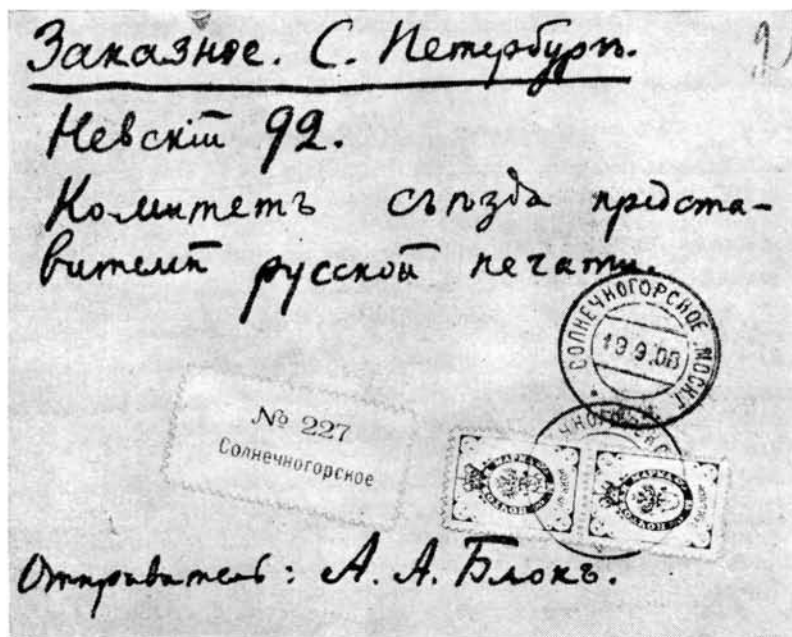 Заказное. С. Петербургъ.
Невскій 92.
Комитетъ съѣзда предста-
вителей русской печати.
СОЛНЕЧНОГОРСКОЕ МОСК.Г.
19 9.08
№ 227
Солнечногорское
МАРКА
МАРКА
Отправитель: А. А. Блокъ.